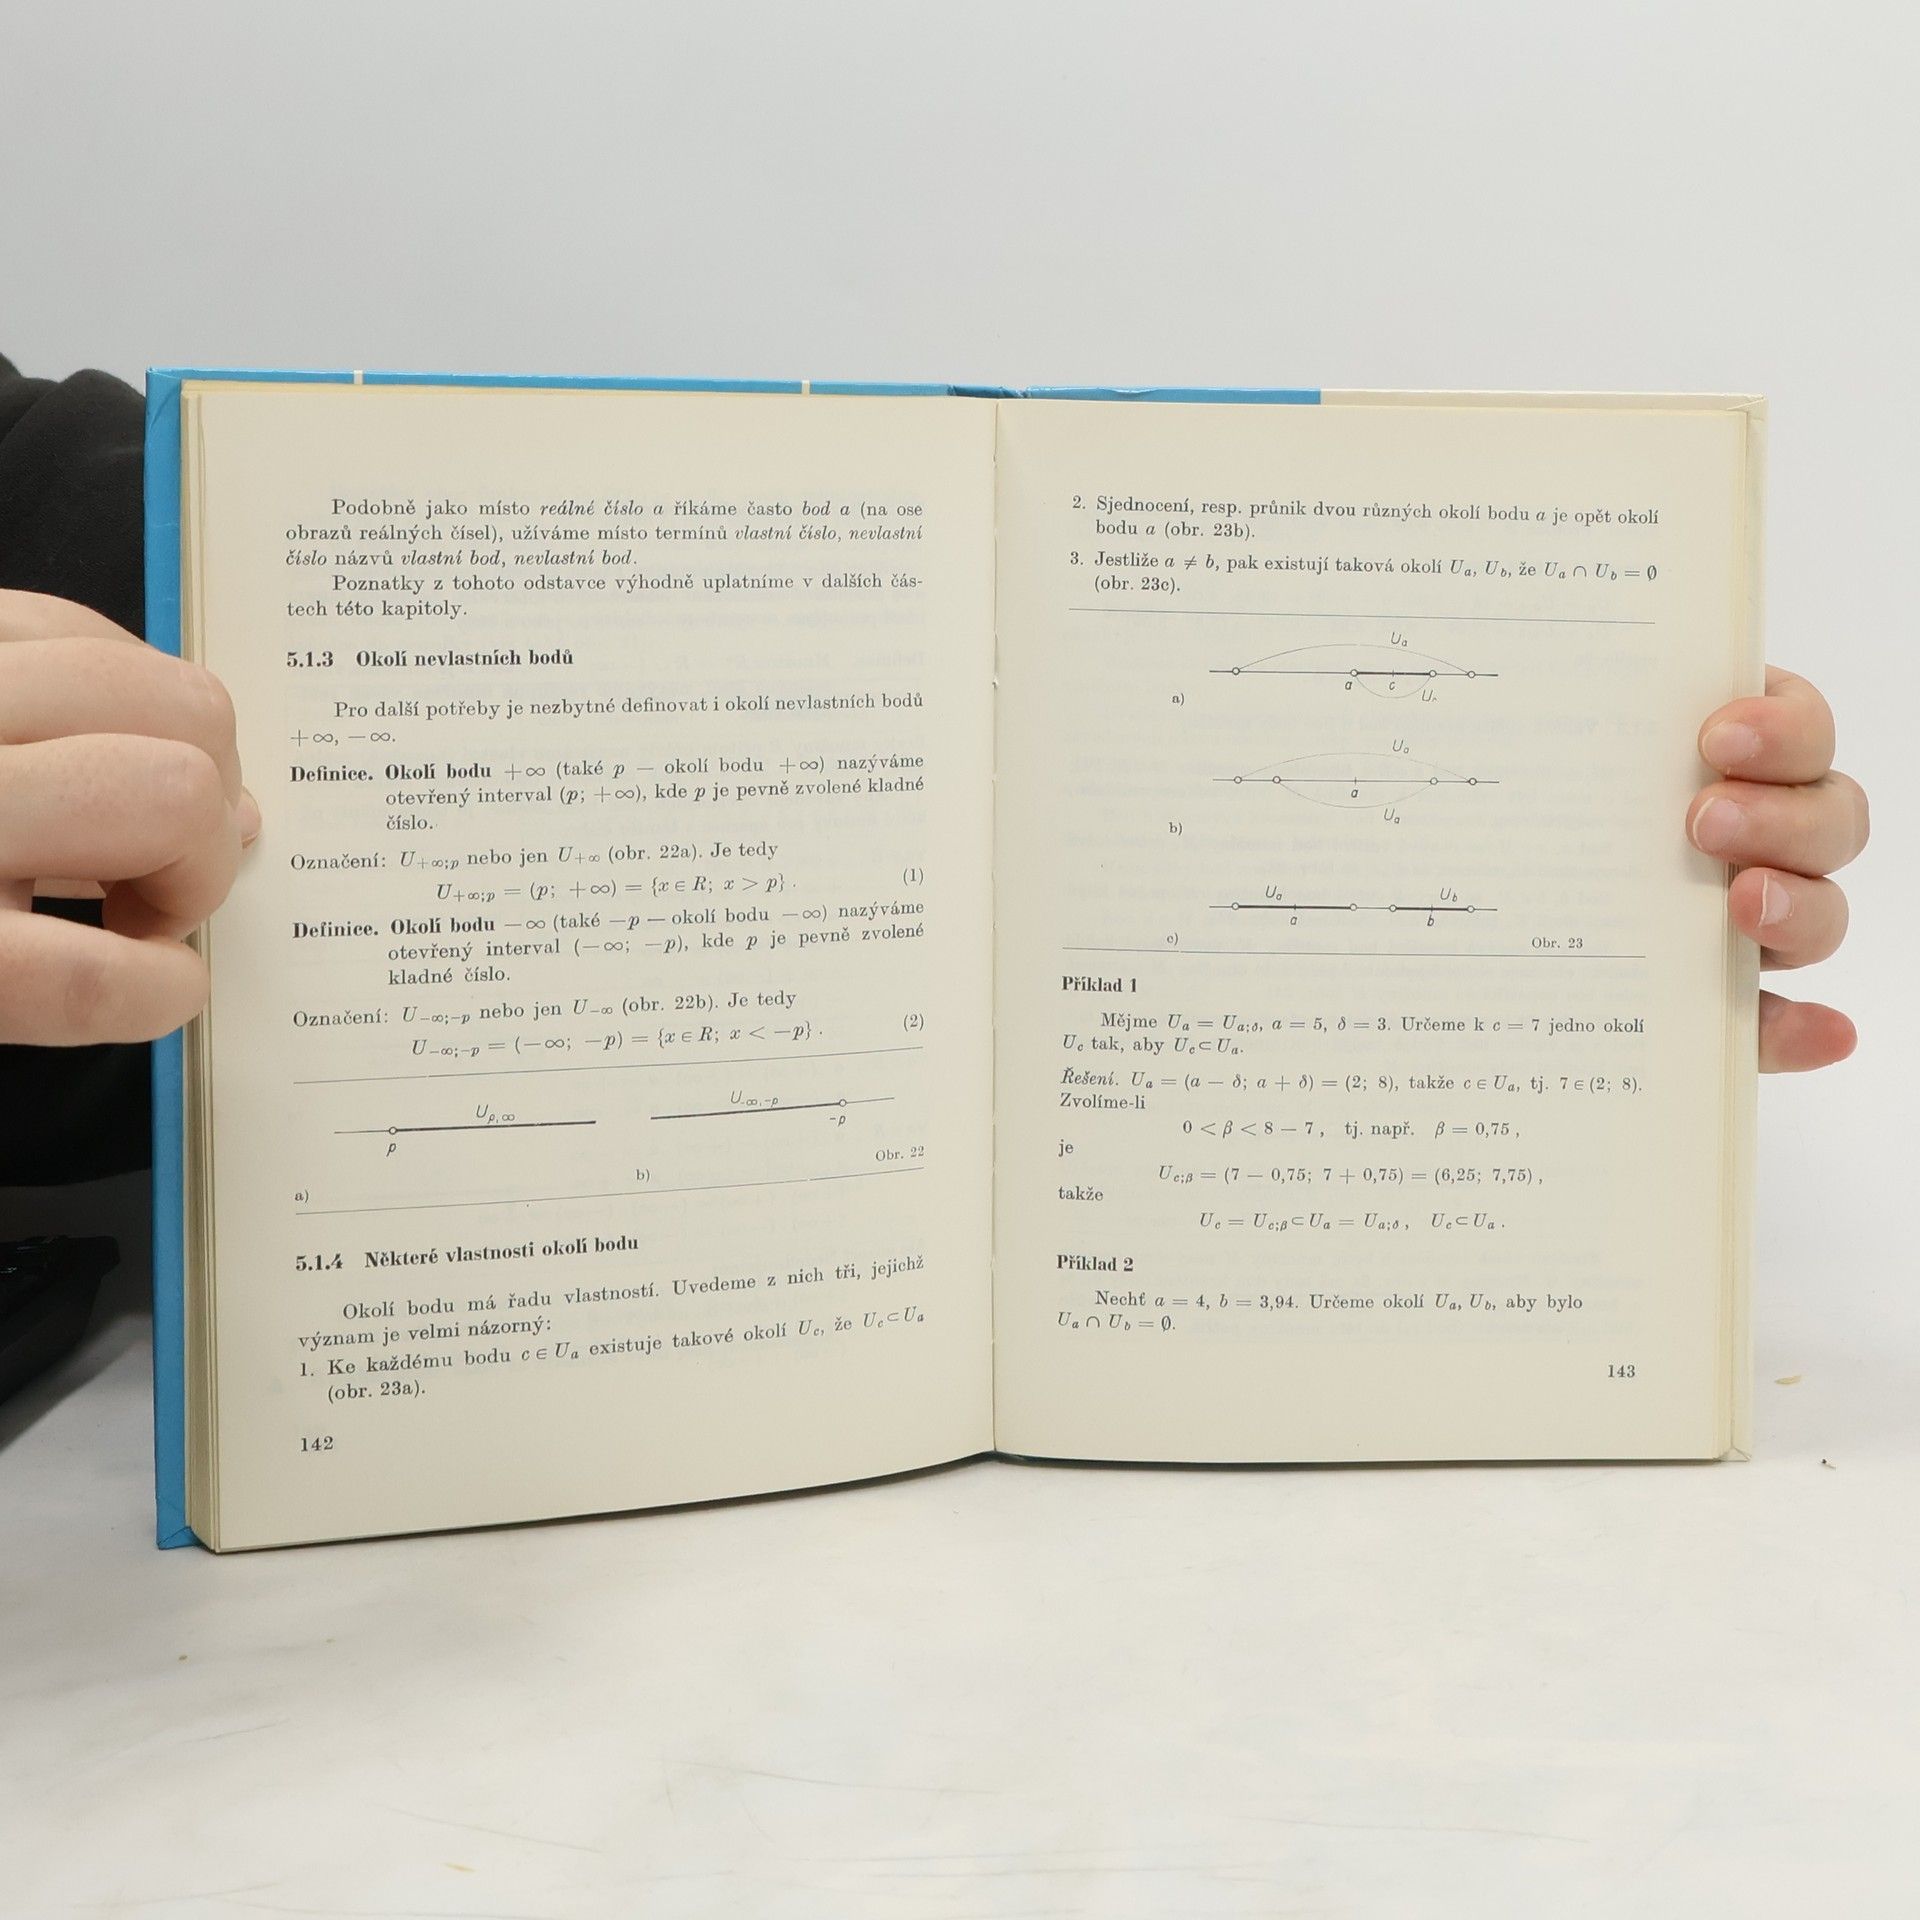 Podobně jako místo reálné číslo a říkáme často bod a (na ose
obrazů reálných čísel), užíváme místo termínů vlastní číslo, nevlastní
číslo názvů vlastní bod, nevlastní bod.
Poznatky z tohoto odstavce výhodně uplatníme v dalších čás-
tech této kapitoly.
5.1.3 Okolí nevlastních bodů
Pro další potřeby je nezbytné definovat i okolí nevlastních bodů
+∞, −∞.
Definice. Okolí bodu +∞ (také p − okolí bodu +∞) nazýváme
otevřený interval (p; +∞), kde p je pevně zvolené kladné
číslo.
Označení: U+∞;p nebo jen U+∞ (obr. 22a). Je tedy
U+∞;p = (p; +∞) = {x ∈ R; x > p} . (1)
Definice. Okolí bodu −∞ (také −p − okolí bodu −∞) nazýváme
otevřený interval (−∞; −p), kde p je pevně zvolené
kladné číslo.
Označení: U−∞;−p nebo jen U−∞ (obr. 22b). Je tedy
U−∞;−p = (−∞; −p) = {x ∈ R; x < −p} . (2)
Up,∞
p
a)
U-∞,-p
-p
b)
Obr. 22
5.1.4 Některé vlastnosti okolí bodu
Okolí bodu má řadu vlastností. Uvedeme z nich tři, jejichž
význam je velmi názorný:
1. Ke každému bodu c ∈ Ua existuje takové okolí Uc, že Uc ⊂ Ua
(obr. 23a).
142
2. Sjednocení, resp. průnik dvou různých okolí bodu a je opět okolí
bodu a (obr. 23b).
3. Jestliže a ≠ b, pak existují taková okolí Ua, Ub, že Ua ∩ Ub = ∅
(obr. 23c).
Ua
a c Uc
a)
Ua
a
Ua
b)
Ua Ub
a b
c)
Obr. 23
Příklad 1
Mějme Ua = Ua;δ, a = 5, δ = 3. Určeme k c = 7 jedno okolí
Uc tak, aby Uc ⊂ Ua.
Řešení. Ua = (a − δ; a + δ) = (2; 8), takže c ∈ Ua, tj. 7 ∈ (2; 8).
Zvolíme-li
0 < β < 8 − 7 , tj. např. β = 0,75 ,
je
Uc;β = (7 − 0,75; 7 + 0,75) = (6,25; 7,75) ,
takže
Uc = Uc;β ⊂ Ua = Ua;δ , Uc ⊂ Ua .
Příklad 2
Nechť a = 4, b = 3,94. Určeme okolí Ua, Ub, aby bylo
Ua ∩ Ub = ∅.
143